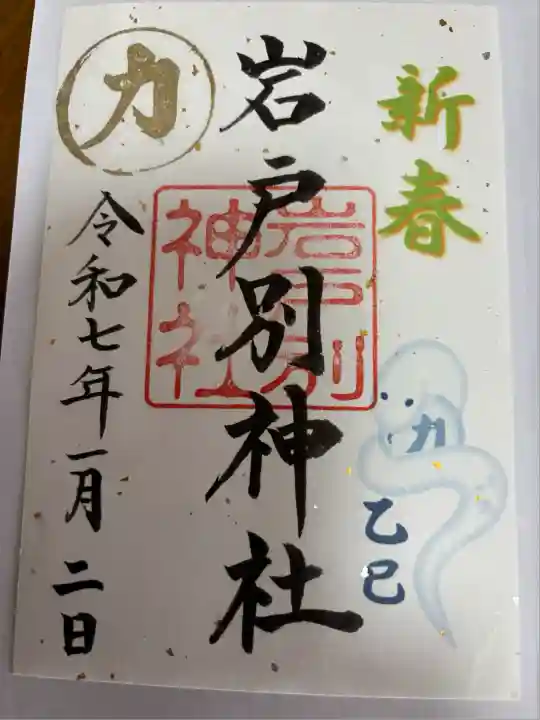 新春
乙巳
力
岩戸別神社
岩戸別
神社
力
令和七年一月二日